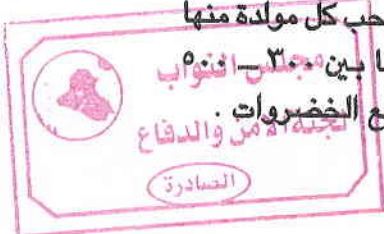 حب كل مولدة منها
ا بين ٣٠٠ – ٥٠٠
ع الخضروات .
مجلس النواب
لجنة الأمن والدفاع
(الصادرة)